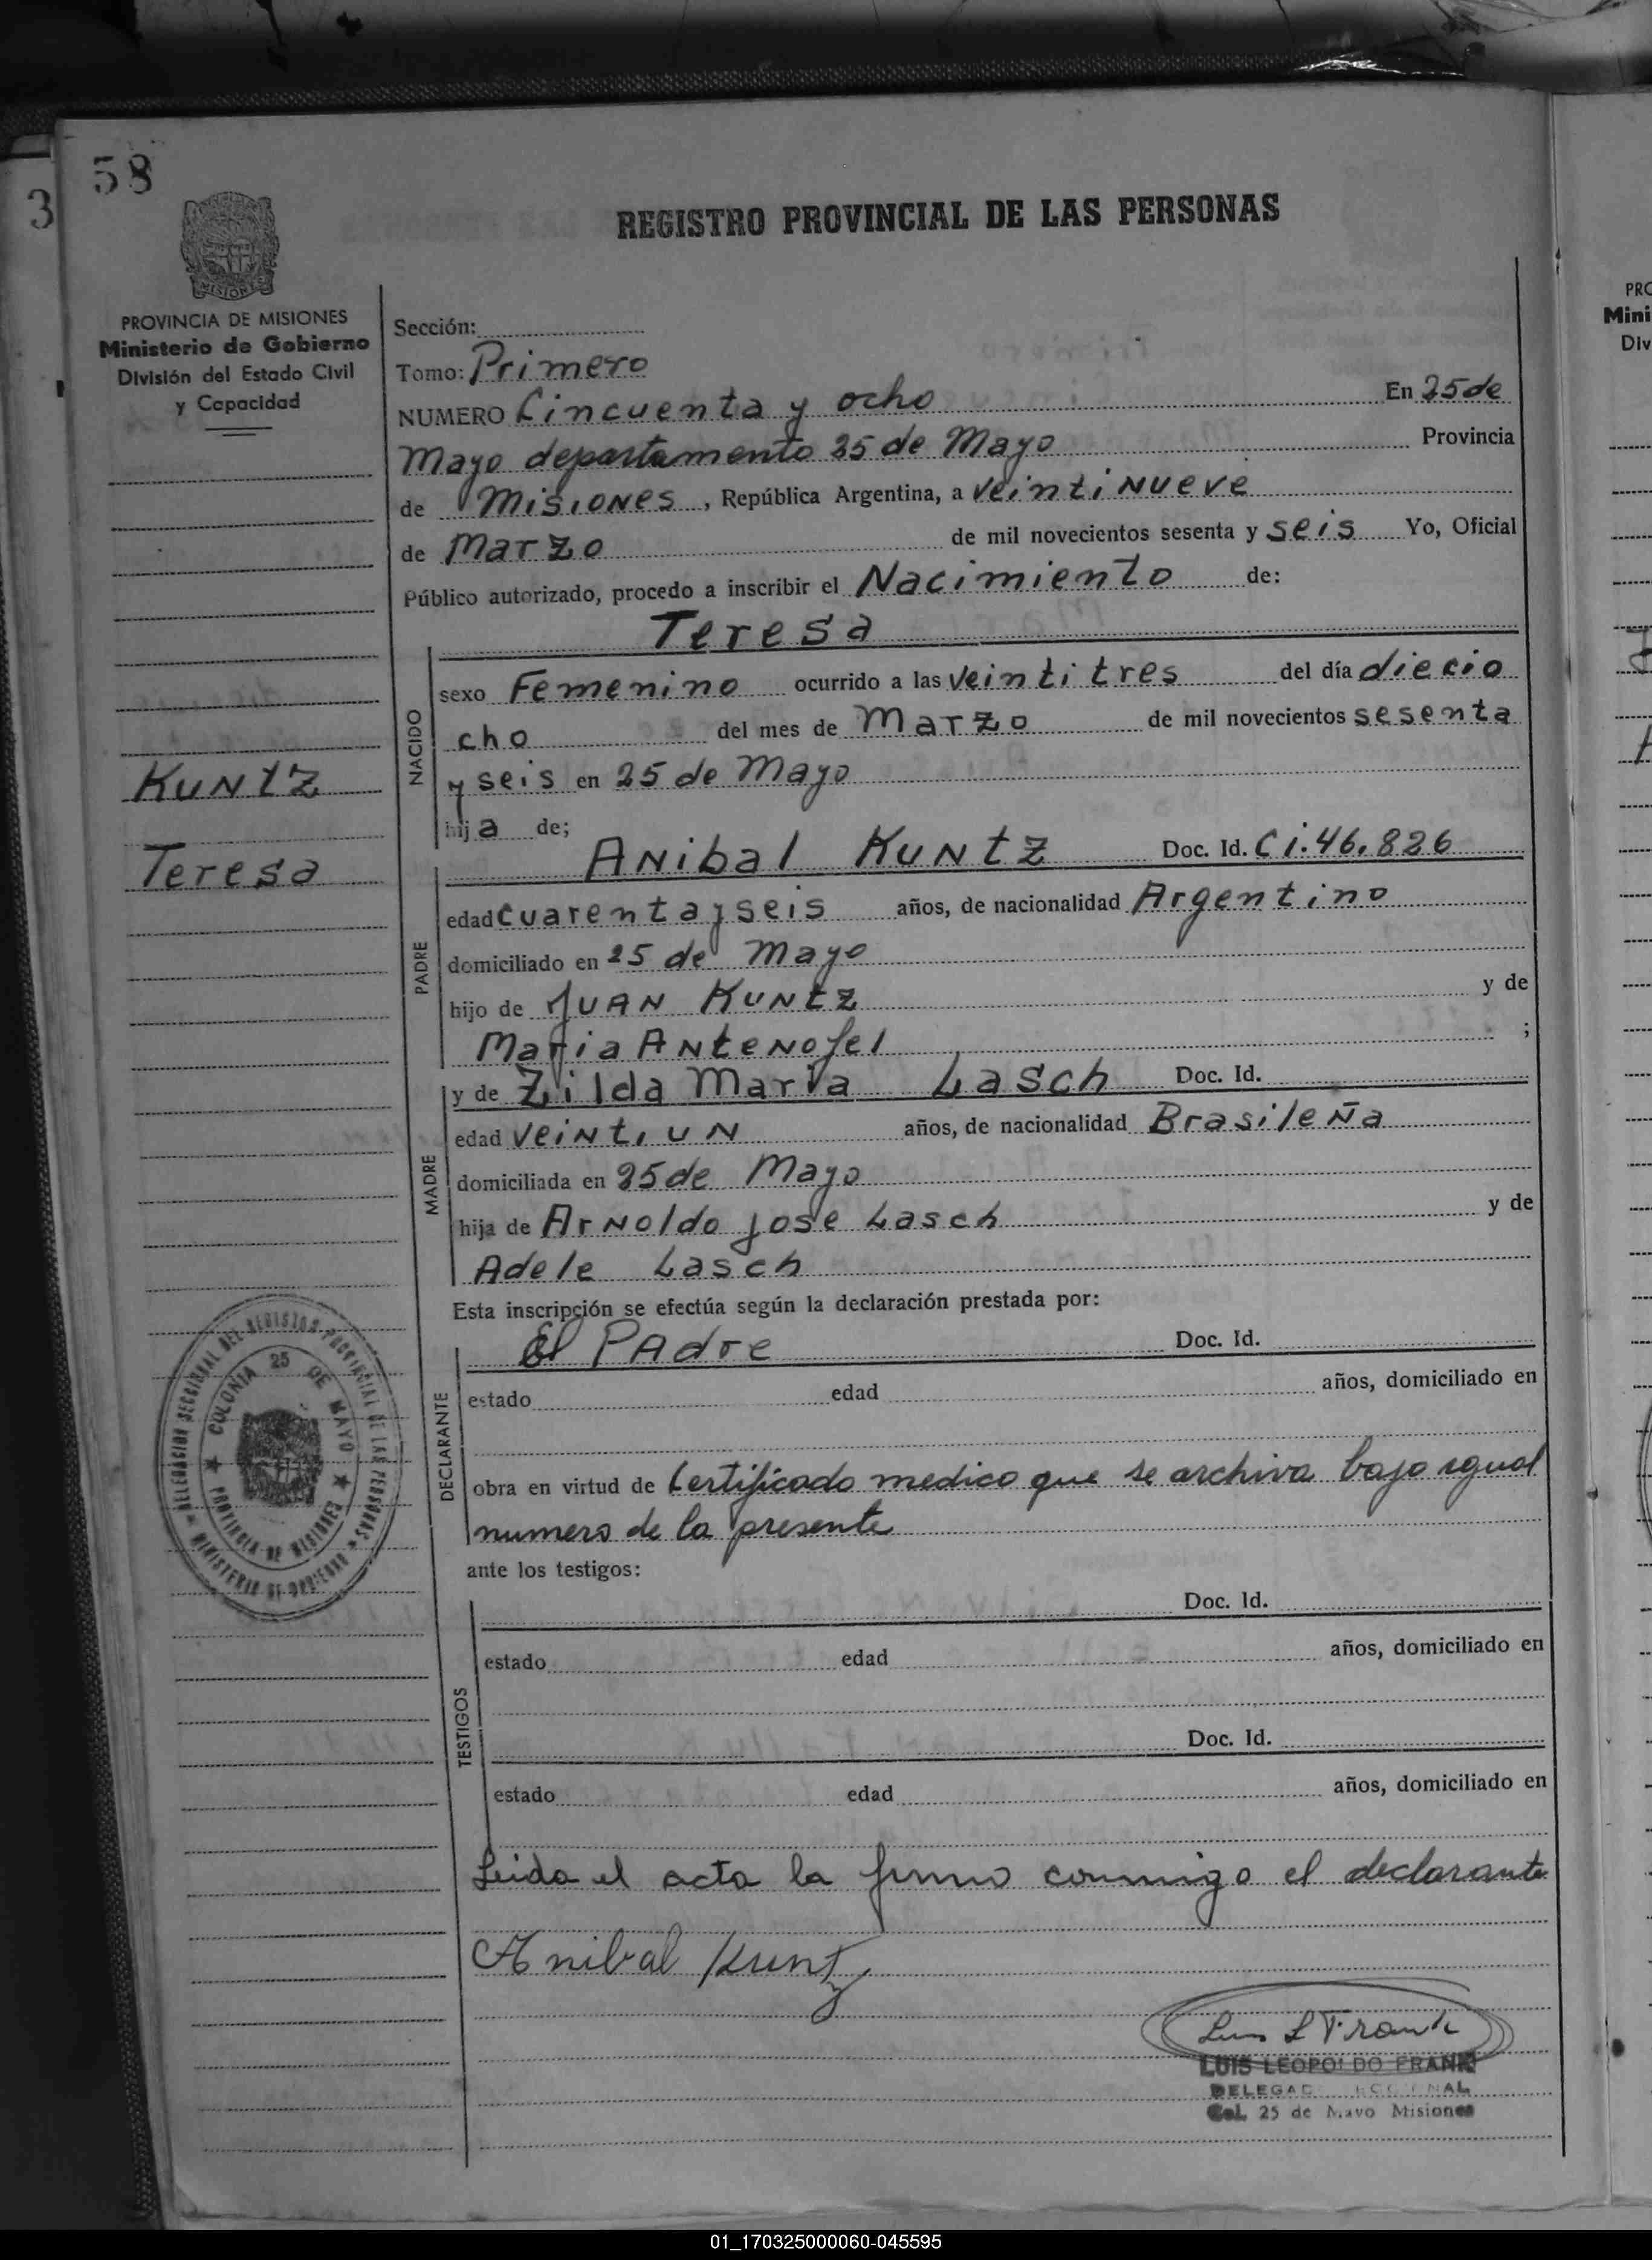 58
3
REGISTRO PROVINCIAL DE LAS PERSONAS
MISIONES
PROVINCIA DE MISIONES
Ministerio de Gobierno
División del Estado Civil
y Capacidad
Sección:
Tomo: Primero
NUMERO Cincuenta y ocho En 25 de
Mayo departamento 25 de Mayo Provincia
de Misiones, República Argentina, a veintinueve
de Marzo de mil novecientos sesenta y seis Yo, Oficial
Público autorizado, procedo a inscribir el Nacimiento de:
NACIDO
Teresa
sexo Femenino ocurrido a las veintitres del día diecio
cho del mes de Marzo de mil novecientos sesenta
y seis en 25 de Mayo
hija de;
KUNTZ
Teresa
PADRE
Anibal Kuntz Doc. Id. Ci. 46.826
edad cuarenta y seis años, de nacionalidad Argentino
domiciliado en 25 de Mayo
hijo de Juan Kuntz y de
Maria Antenofel ;
MADRE
y de Zilda Maria Lasch Doc. Id.
edad veintiun años, de nacionalidad Brasileña
domiciliada en 25 de Mayo
hija de Arnoldo Jose Lasch y de
Adele Lasch
Esta inscripción se efectúa según la declaración prestada por:
DECLARANTE
El Padre Doc. Id.
estado edad años, domiciliado en
obra en virtud de Certificado medico que se archiva bajo igual
numero de la presente
DELEGACION SECCIONAL DEL REGISTRO PROVINCIAL DE LAS PERSONAS
MINISTERIO DE GOBIERNO
COLONIA 25 DE MAYO
PROVINCIA DE MISIONES
ante los testigos:
TESTIGOS
Doc. Id.
estado edad años, domiciliado en
Doc. Id.
estado edad años, domiciliado en
Leida el acta la firma conmigo el declarante
Anibal Kuntz
Luis L Frank
LUIS LEOPOLDO FRANK
DELEGADO SECCIONAL
Col. 25 de Mayo Misiones
PRO
Mini
Div
01_170325000060-045595